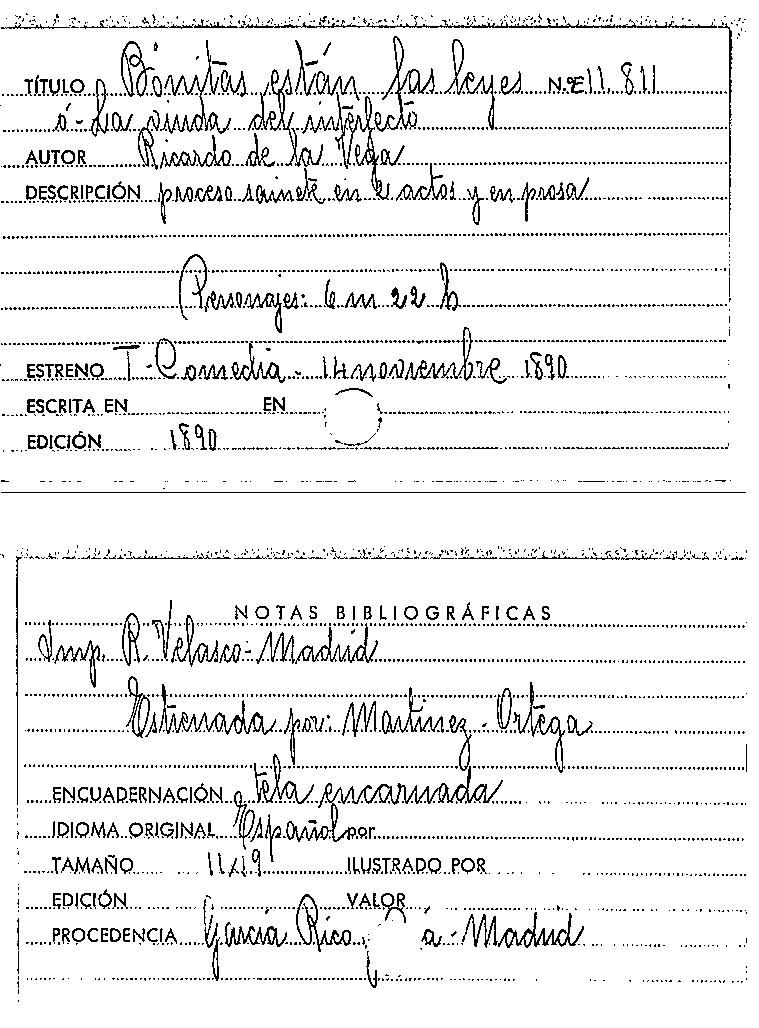 TÍTULO Bonitas están las leyes N.º E11.811
ó - La viuda del interfecto
AUTOR Ricardo de la Vega
DESCRIPCIÓN proceso sainete en 2 actos y en prosa
Personajes: 6 m 22 h
ESTRENO T - Comedia - 14 noviembre 1890
ESCRITA EN EN
EDICIÓN 1890
NOTAS BIBLIOGRÁFICAS
Imp. R. Velasco - Madrid
Estrenada por: Martinez - Ortega
ENCUADERNACIÓN tela encarnada
IDIOMA ORIGINAL Español por
TAMAÑO 11x19 ILUSTRADO POR
EDICIÓN VALOR
PROCEDENCIA García Rico á - Madrid